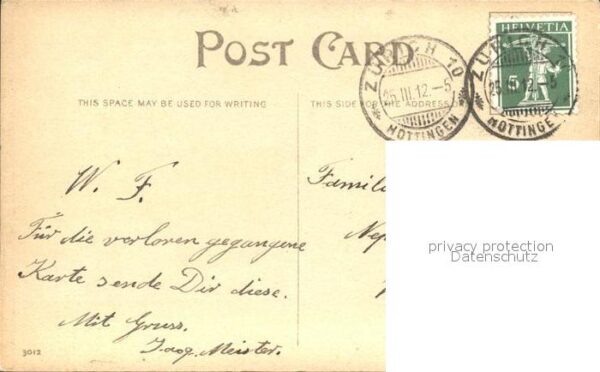 POST CARD
HELVETIA
5
ZÜRICH 10
25.III.12.-5
HOTTINGEN
ZÜRICH 10
25.III.12.-5
HOTTINGEN
THIS SPACE MAY BE USED FOR WRITING
THIS SIDE FOR THE ADDRESS
W. F.
Für die verloren gegangene
Karte sende Dir diese.
Mit Gruss.
Meister.
Famili
Nep
privacy protection
Datenschutz
3012